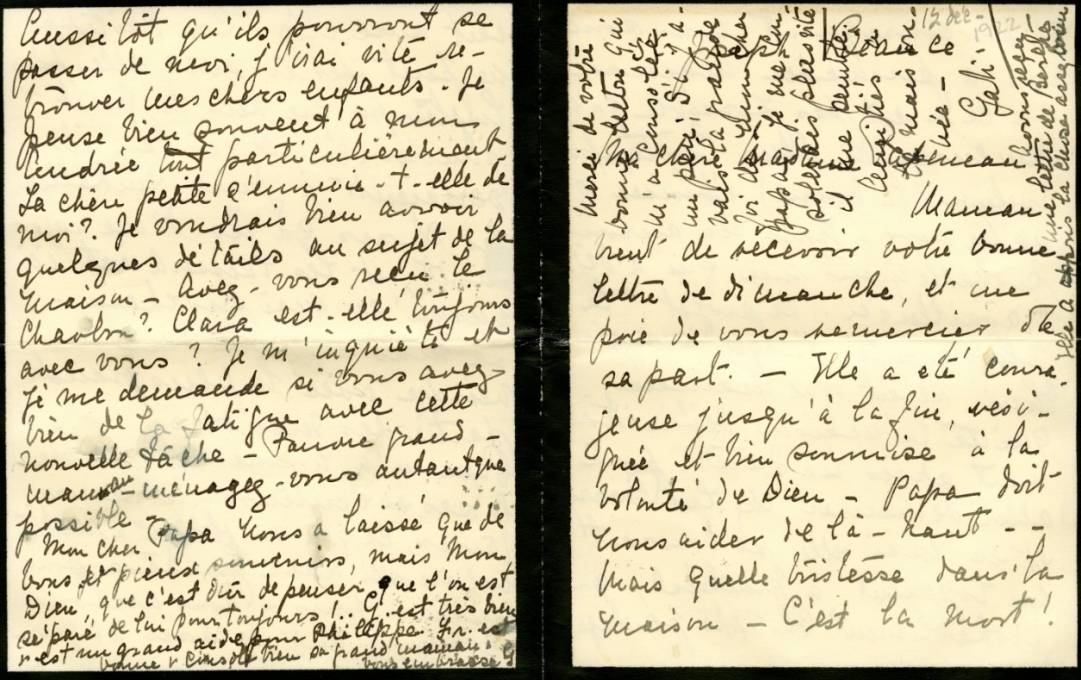 Aussitôt qu'ils pourront se
passer de moi, j'irai vite re-
trouver mes chers enfants. Je
pense bien souvent à mon
Andrée tout particulièrement
La chère petite s'ennuie-t-elle de
moi? Je voudrais bien avoir
quelques détails au sujet de la
maison - Avez-vous reçu le
charbon? Clara est-elle toujours
avec vous? Je m'inquiète et
je me demande si vous avez
bien de la fatigue avec cette
nouvelle tâche - Pauvre grand-
maman - ménagez-vous autant que
possible -
Mon cher Papa nous a laissé que de
bons et pieux souvenirs, mais Mon
Dieu, que c'est dur de penser que l'on est
séparé de lui pour toujours! .. G. est très bien
& est un grand aide pour Philippe. Fr. est
bonne & console bien sa grand'maman.
vous embrasse G
12 déc -
1922
ce
Gabi -
Ma chère
Maman
vient de recevoir votre bonne
lettre de dimanche, et me
prie de vous remercier de
sa part. - Elle a été coura-
geuse jusqu'à la fin, rési-
gnée et bien soumise à la
volonté de Dieu - Papa doit
nous aider de là-haut - -
Mais quelle tristesse dans la
maison - C'est la mort!
Merci de votre
bonne lettre qui
m'a consolée
un peu! Si j'a-
vais la
de mon cher
papa, je me con-
solerais plus vite
il me semble
Amitiés
une lettre de Berthe
Elle a appris la chose assez bien